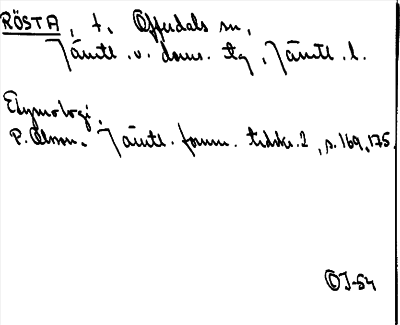 RÖSTA, t, Offerdals sn,
Jämtl. v. doms. tg, Jämtl. l.
Etymologi.
P. Olsson. Jämtl. fornm. tidskr. 2, s. 169, 175.
OJ-54